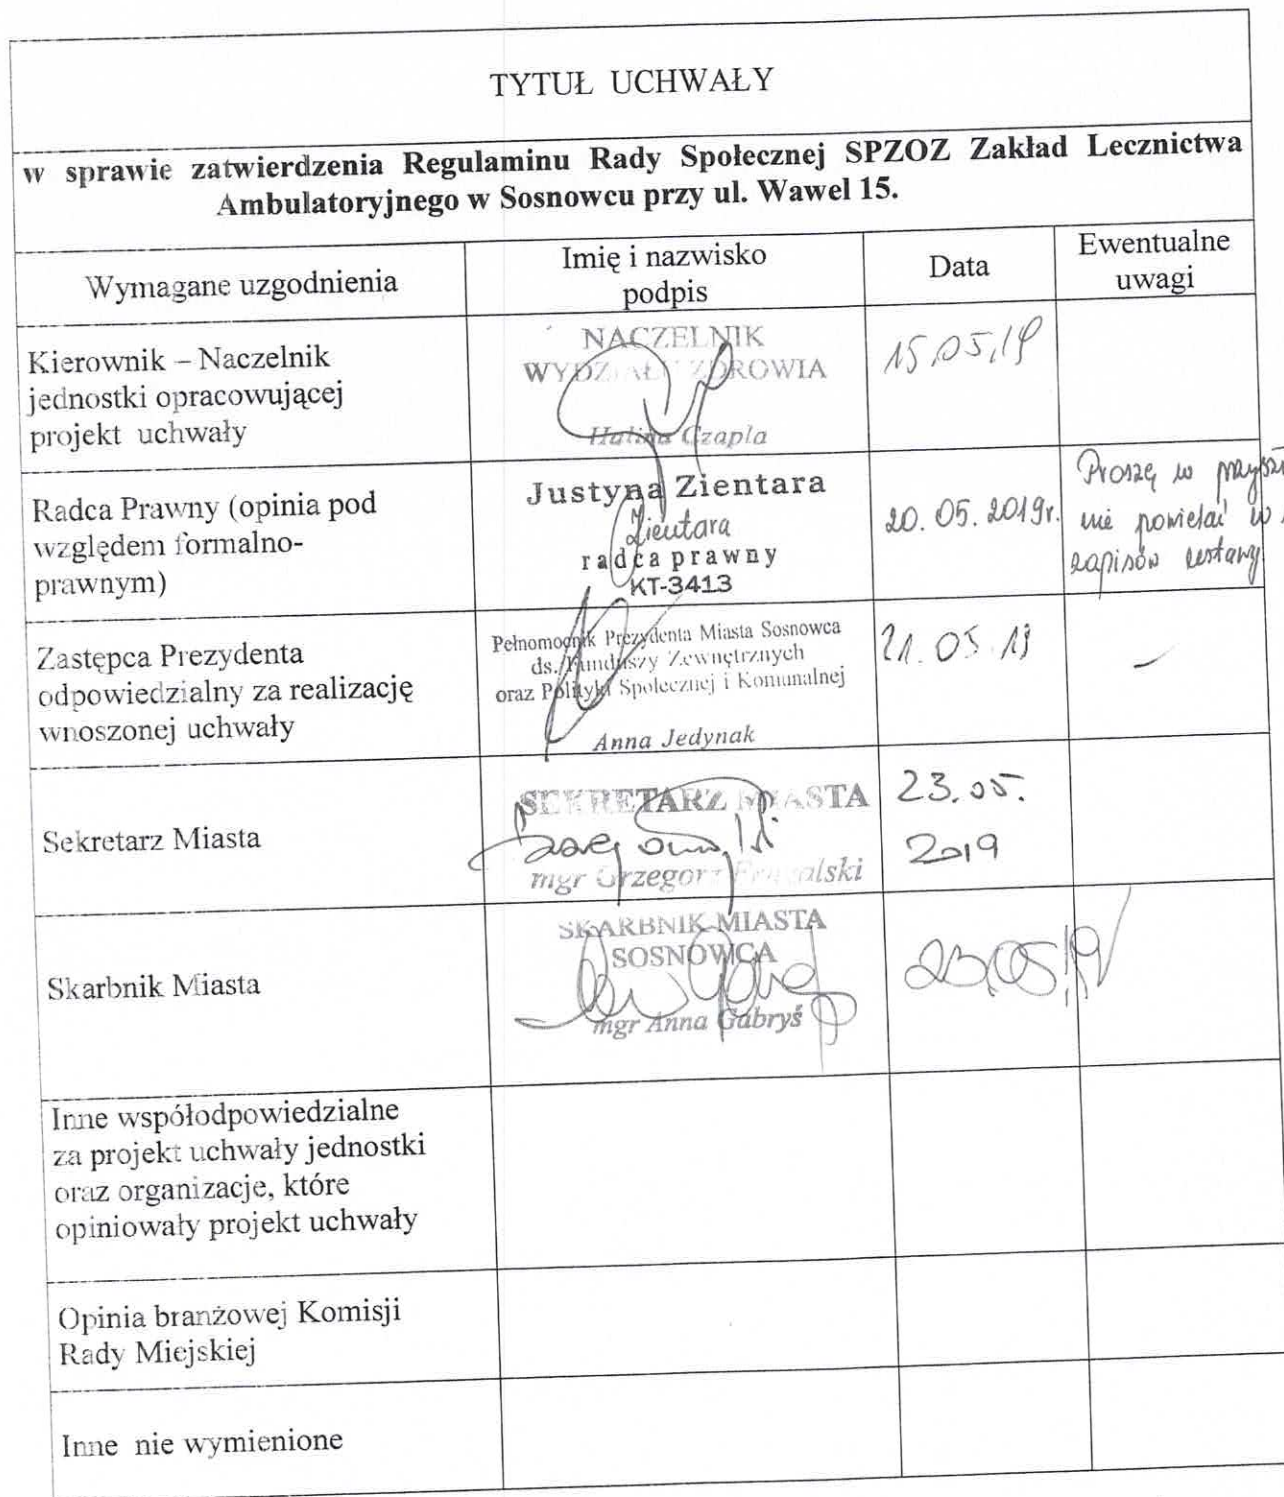 TYTUŁ UCHWAŁY
w sprawie zatwierdzenia Regulaminu Rady Społecznej SPZOZ Zakład Lecznictwa
Ambulatoryjnego w Sosnowcu przy ul. Wawel 15.
Wymagane uzgodnienia
Imię i nazwisko
podpis
Data
Ewentualne
uwagi
Kierownik – Naczelnik
jednostki opracowującej
projekt uchwały
NACZELNIK
WYDZIAŁU ZDROWIA
Halina Czapla
15.05.19
Radca Prawny (opinia pod
względem formalno-
prawnym)
Justyna Zientara
Zientara
radca prawny
KT-3413
20.05.2019r.
Proszę w
nie powielać w
zapisów ustawy
Zastępca Prezydenta
odpowiedzialny za realizację
wnoszonej uchwały
Pełnomocnik Prezydenta Miasta Sosnowca
ds. Funduszy Zewnętrznych
oraz Polityki Społecznej i Komunalnej
Anna Jedynak
21.05.19
–
Sekretarz Miasta
SEKRETARZ MIASTA
mgr Grzegorz
23.05.
2019
Skarbnik Miasta
SKARBNIK MIASTA
SOSNOWCA
mgr Anna Gabryś
23.05.19
Inne współodpowiedzialne
za projekt uchwały jednostki
oraz organizacje, które
opiniowały projekt uchwały
Opinia branżowej Komisji
Rady Miejskiej
Inne nie wymienione